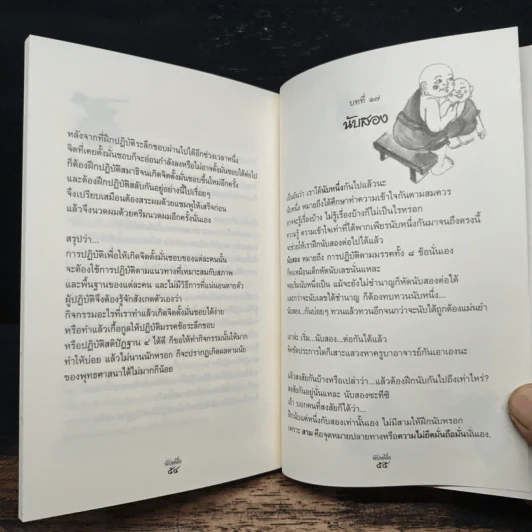 หลังจากที่ฝึกปฏิบัติระลึกชอบผ่านไปได้อีกช่วงเวลาหนึ่ง
จิตที่เคยตั้งมั่นชอบก็จะอ่อนกำลังลงหรือไม่อาจตั้งมั่นชอบได้ต่อไป
ก็ต้องฝึกปฏิบัติสมาธิจนเกิดจิตตั้งมั่นชอบขึ้นใหม่อีกครั้ง
และต้องฝึกปฏิบัติสลับกันอยู่อย่างนี้ไปเรื่อยๆ
จึงเปรียบเสมือนต้องสระผมด้วยแชมพูให้เสร็จก่อน
แล้วจึงนวดผมด้วยครีมนวดผมอีกครั้งนั่นเอง
สรุปว่า...
การปฏิบัติเพื่อให้เกิดจิตตั้งมั่นชอบของแต่ละคนนั้น
จะต้องใช้การปฏิบัติตามแนวทางที่เหมาะสมกับสภาพ
และพื้นฐานของแต่ละคน และไม่มีวิธีการที่แน่นอนตายตัว
ผู้ปฏิบัติจึงต้องรู้จักสังเกตตัวเองว่า
กิจกรรมอะไรที่เราทำแล้วเกิดจิตตั้งมั่นชอบได้ง่าย
หรือทำแล้วเกื้อกูลให้ปฏิบัติมรรคข้อระลึกชอบ
หรือปฏิบัติสติปัฏฐาน ๔ ได้ดี ก็ขอให้ทำกิจกรรมนั้นให้มาก
ทำให้บ่อย แล้วไม่นานนักหรอก ก็จะปรากฏเกิดผลตามนัย
ของพุทธศาสนาได้ไม่มากก็น้อย
๕๔
บทที่ ๑๗
นับสอง
เป็นอันว่า เราได้นับหนึ่งกันไปแล้วนะ
นับหนึ่ง หมายถึงได้ศึกษาทำความเข้าใจกันตามสมควร
อาจจะรู้เรื่องบ้าง ไม่รู้เรื่องบ้างก็ไม่เป็นไรหรอก
ความรู้ ความเข้าใจที่ท่านได้พากเพียรนับหนึ่งกันมาจนถึงตรงนี้
จะช่วยให้เราฝึกนับสองต่อไปได้แล้ว
นับสอง หมายถึง การปฏิบัติตามมรรคทั้ง ๘ ข้อนั่นเอง
ก็เหมือนเด็กหัดนับเลขนั่นแหละ
พอเริ่มนับหนึ่งเป็น แม้จะยังไม่ชำนาญก็หัดนับสองต่อได้
และกว่าจะนับเลขได้ชำนาญ ก็ต้องทบทวนนับหนึ่ง...
นับสอง...กันบ่อยๆ ทวนแล้วทวนอีกจนกว่าจะนับได้ถูกต้องแม่นยำ
เอาล่ะ เริ่ม...นับสอง...ต่อกันได้แล้ว
แล้วสงสัยกันบ้างหรือเปล่าว่า...แล้วต้องฝึกนับกันไปถึงเท่าไหร่?
สงสัยกันอยู่นั่นแหละ นับสองซะทีซิ
บอกคนที่สงสัยก็ได้ว่า...
ฝึกนับแค่หนึ่งกับสองเท่านั้นเอง ไม่มีสามให้ฝึกนับหรอก
เพราะ สาม คือจุดหมายปลายทางหรือความไม่ยึดมั่นถือมั่นนั่นเอง.
๕๕